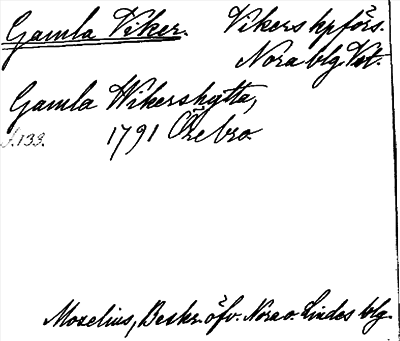 Gamla Viker. Vikers kpförs.
Nora blg Vst.
Gamla Wikershytta,
s.133. 1791 Örebro
Moxelius, Beskr. öfv. Nora o. Lindes blg.